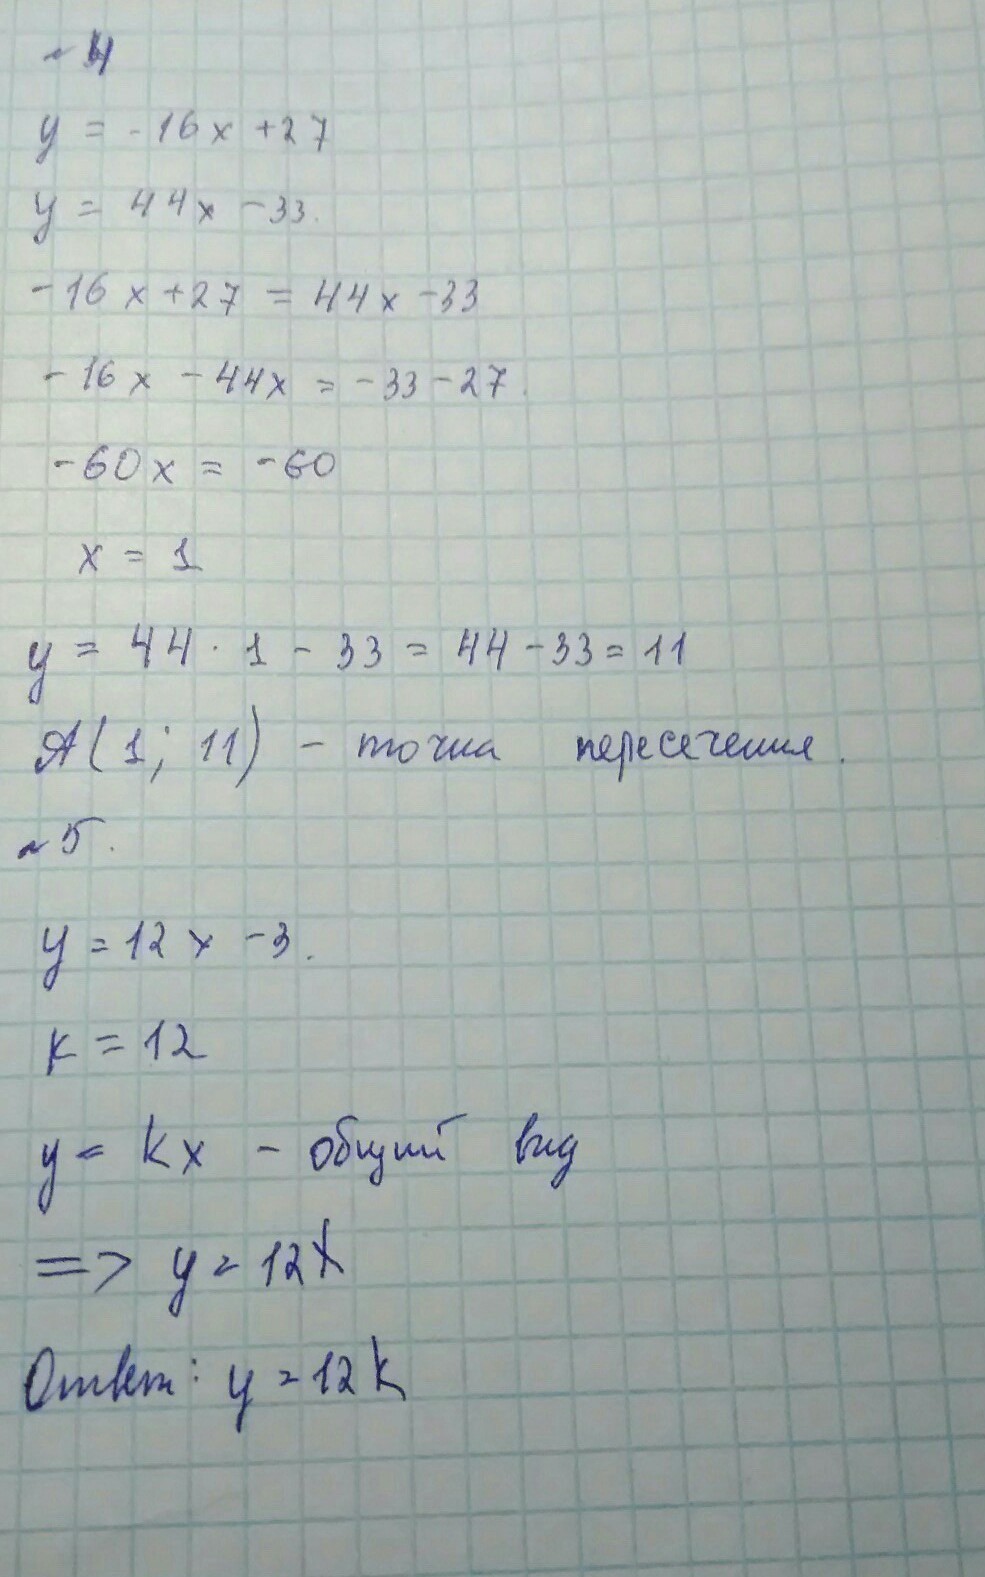 ~ 4
y = -16x +27
y = 44x -33.
-16x+27 = 44x -33
-16x -44x = -33-27.
-60x = -60
x = 1
y = 44 · 1 - 33 = 44 -33= 11
A(1; 11) - точка пересечения.
~ 5.
y =12x -3.
k = 12
y = kx - общий вид
=> y = 12x
Ответ: y = 12k